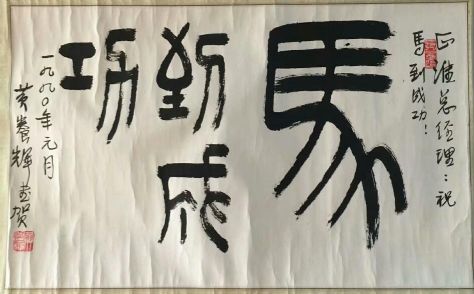 正总经理：祝
馬到成功！
馬
到成
功
一九九〇年元月
黄養輝贺